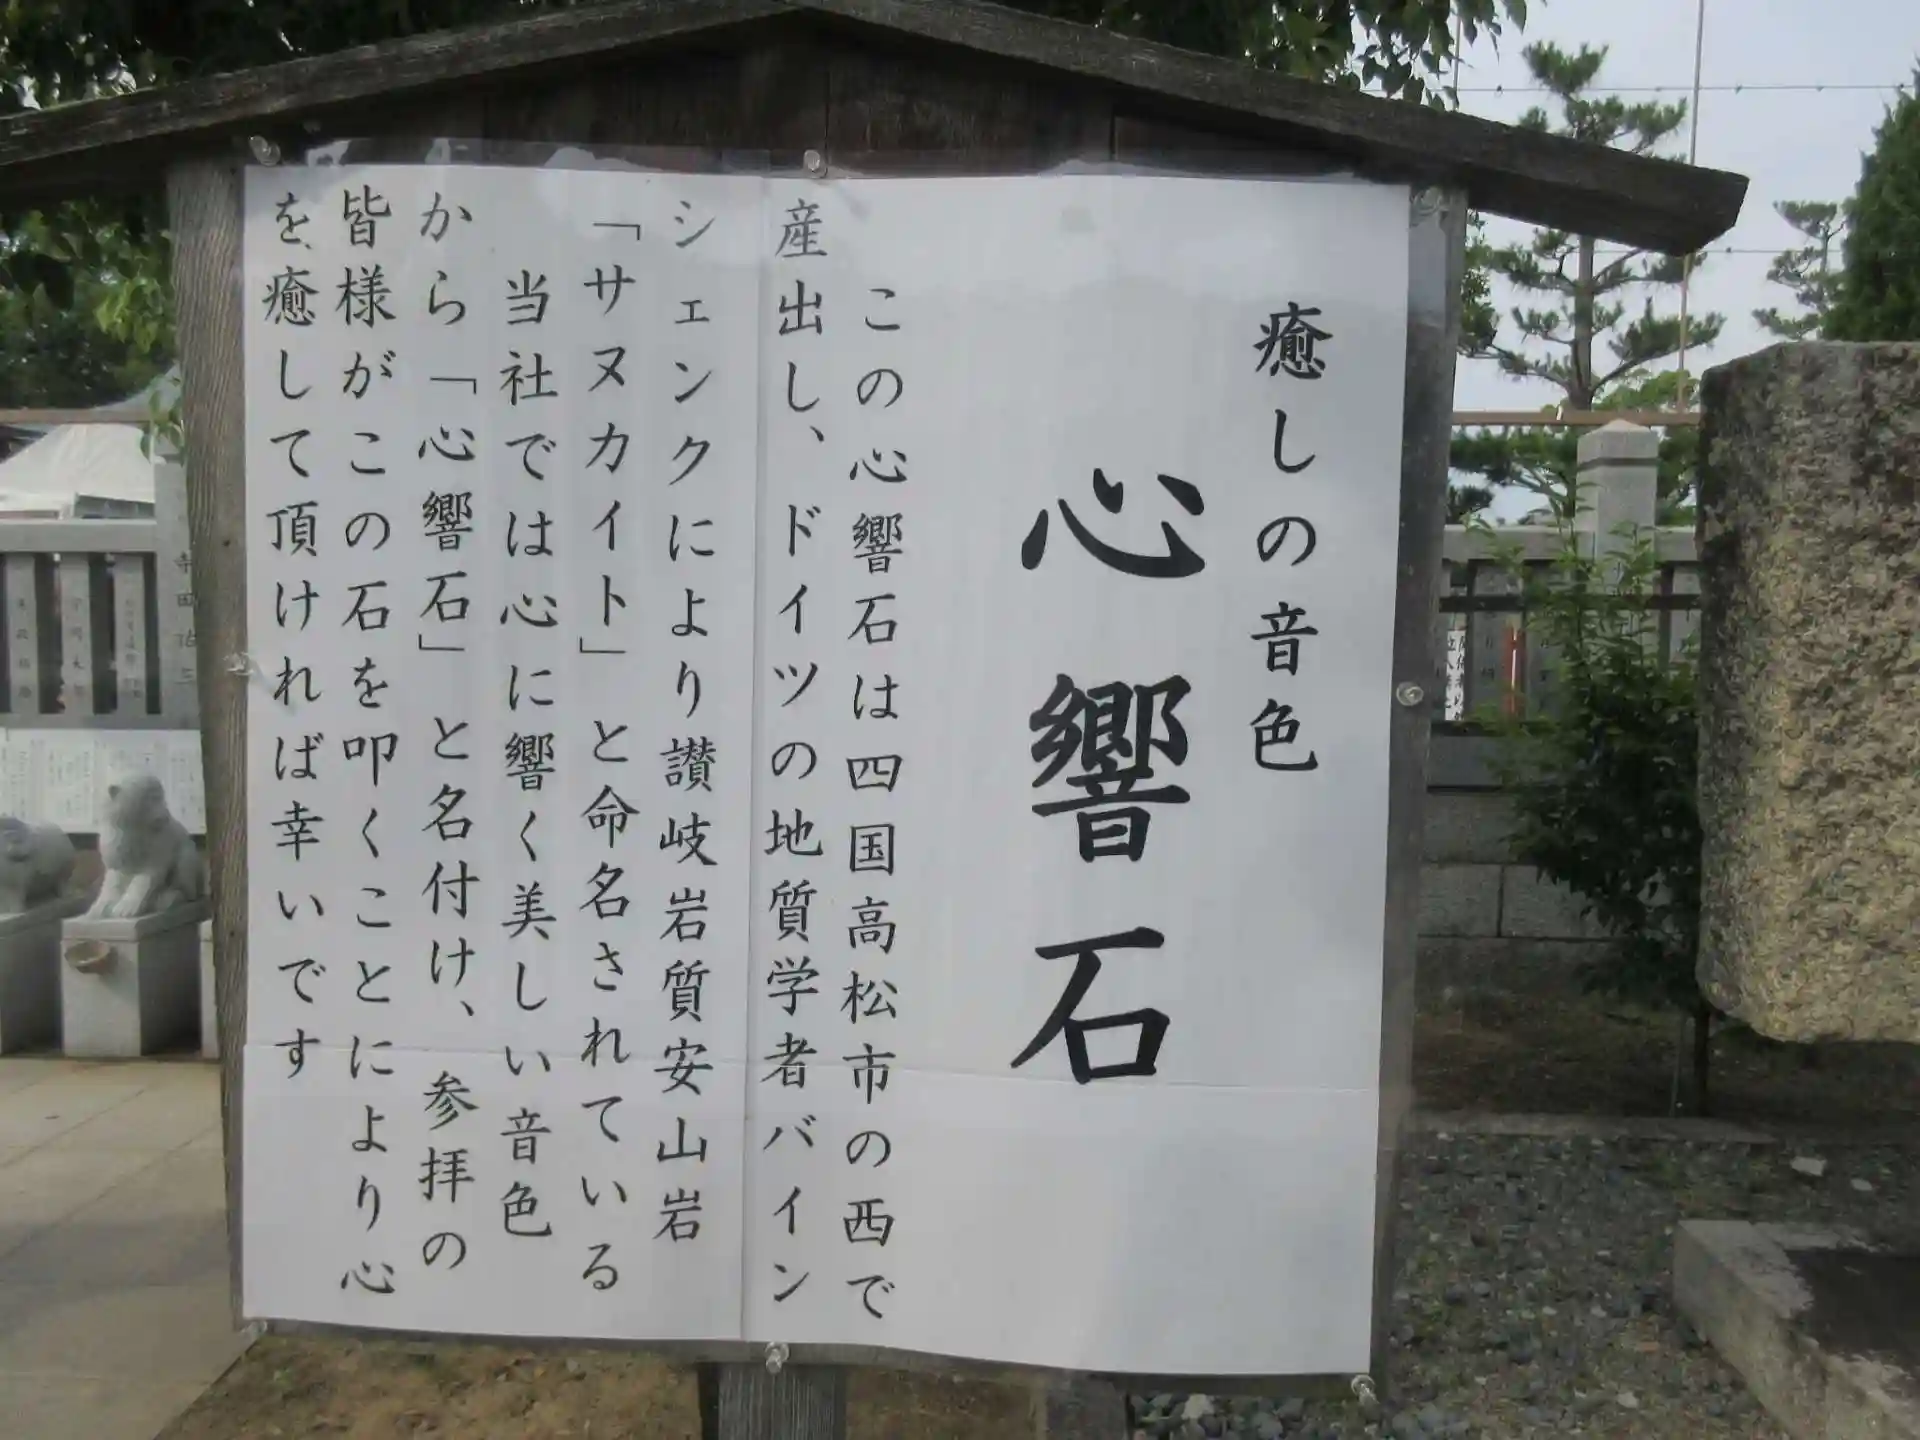 癒しの音色
心響石
この心響石は四国高松市の西で
産出し、ドイツの地質学者バイン
シェンクにより讃岐岩質安山岩
「サヌカイト」と命名されている
当社では心に響く美しい音色
から「心響石」と名付け、参拝の
皆様がこの石を叩くことにより心
を、癒して頂ければ幸いです
寺田祐三